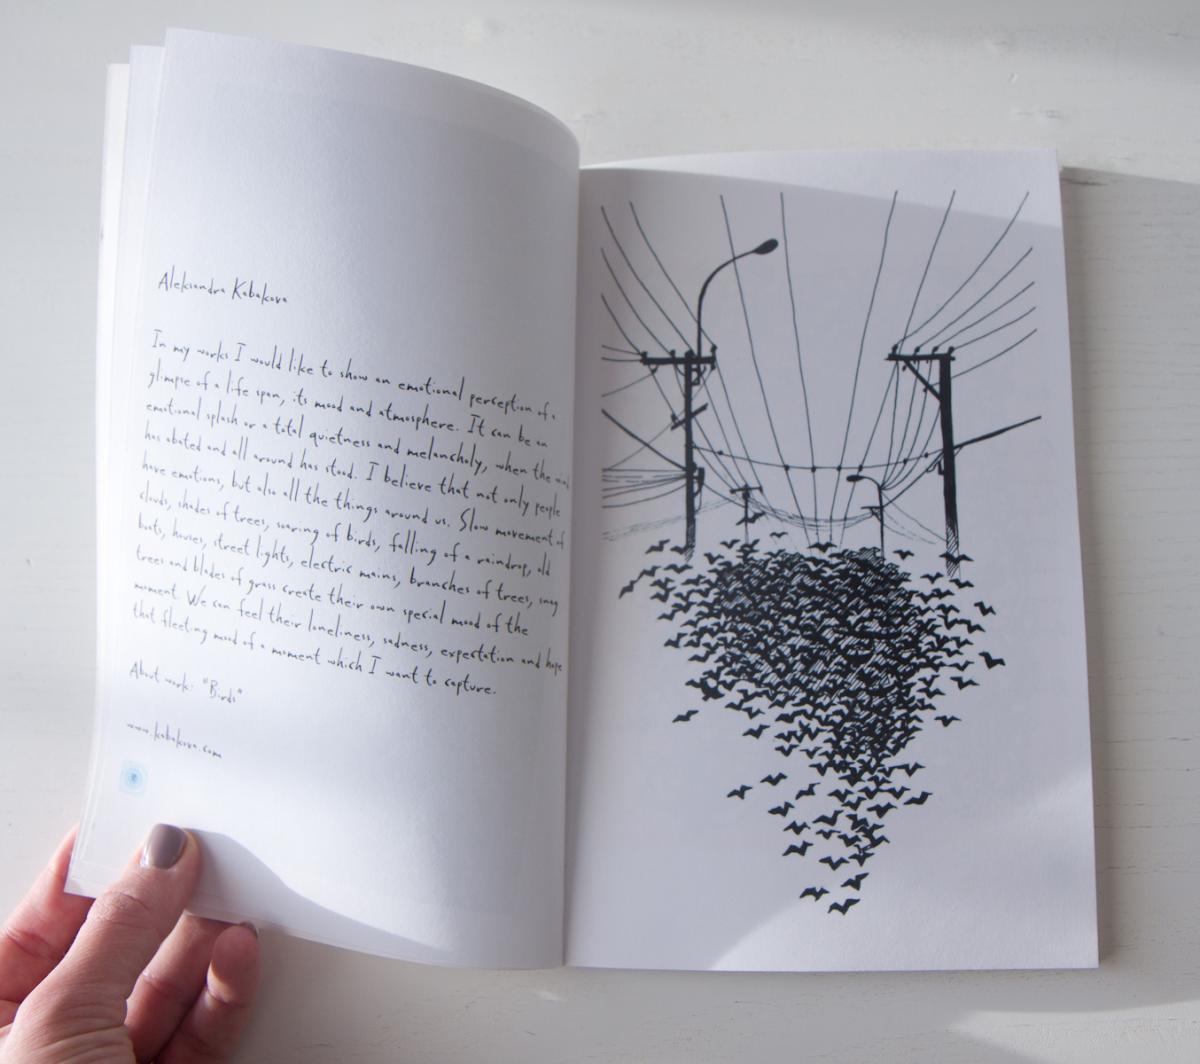 Aleksandra Kabakova
In my works I would like to show an emotional perception of a
glimpse of a life span, its mood and atmosphere. It can be an
emotional splash or a total quietness and melancholy, when the wind
has abated and all around has stood. I believe that not only people
have emotions, but also all the things around us. Slow movement of
clouds, shades of trees, soaring of birds, falling of a raindrop, old
boats, houses, street lights, electric mains, branches of trees, snag
trees and blades of grass create their own special mood of the
moment. We can feel their loneliness, sadness, expectation and hope
that fleeting mood of a moment which I want to capture.
About work: "Birds"
www.kabakova.com